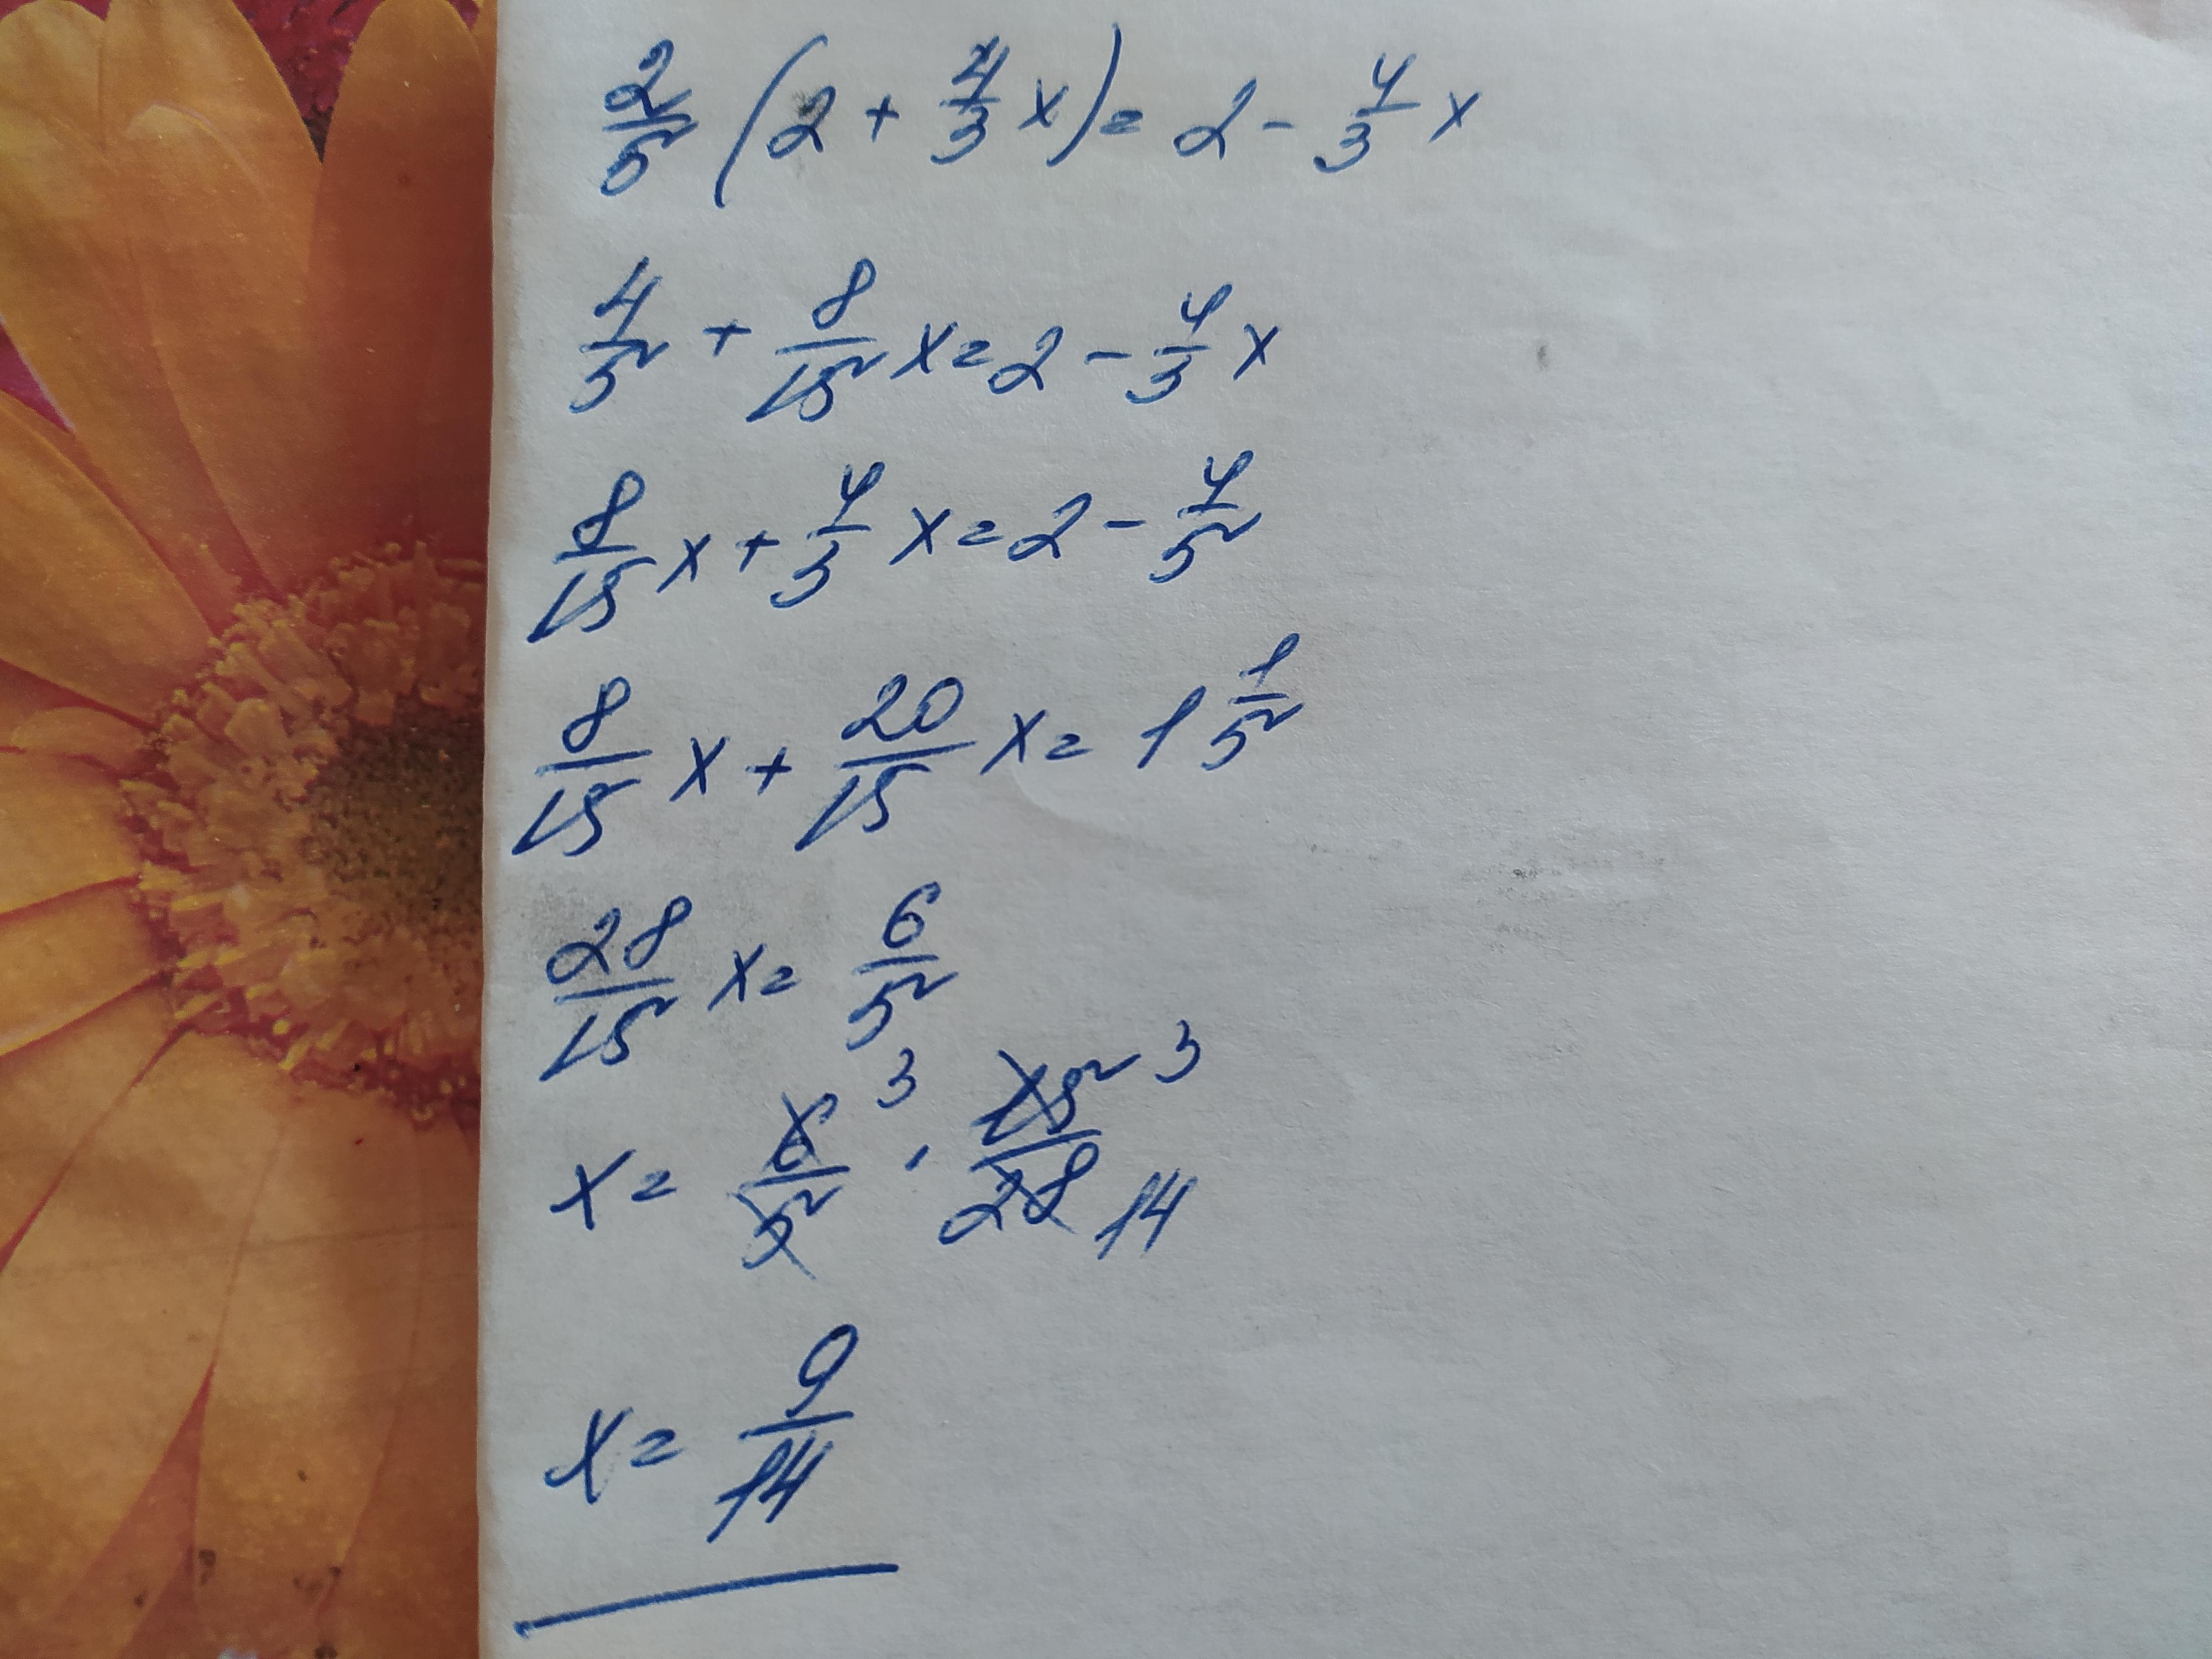 2/5 (2 + 4/3 x) = 2 - 4/3 x
4/5 + 8/15 x = 2 - 4/3 x
8/15 x + 4/3 x = 2 - 4/5
8/15 x + 20/15 x = 1 1/5
28/15 x = 6/5
x = 6/5 3 · 15/28 3 14
x = 9/14